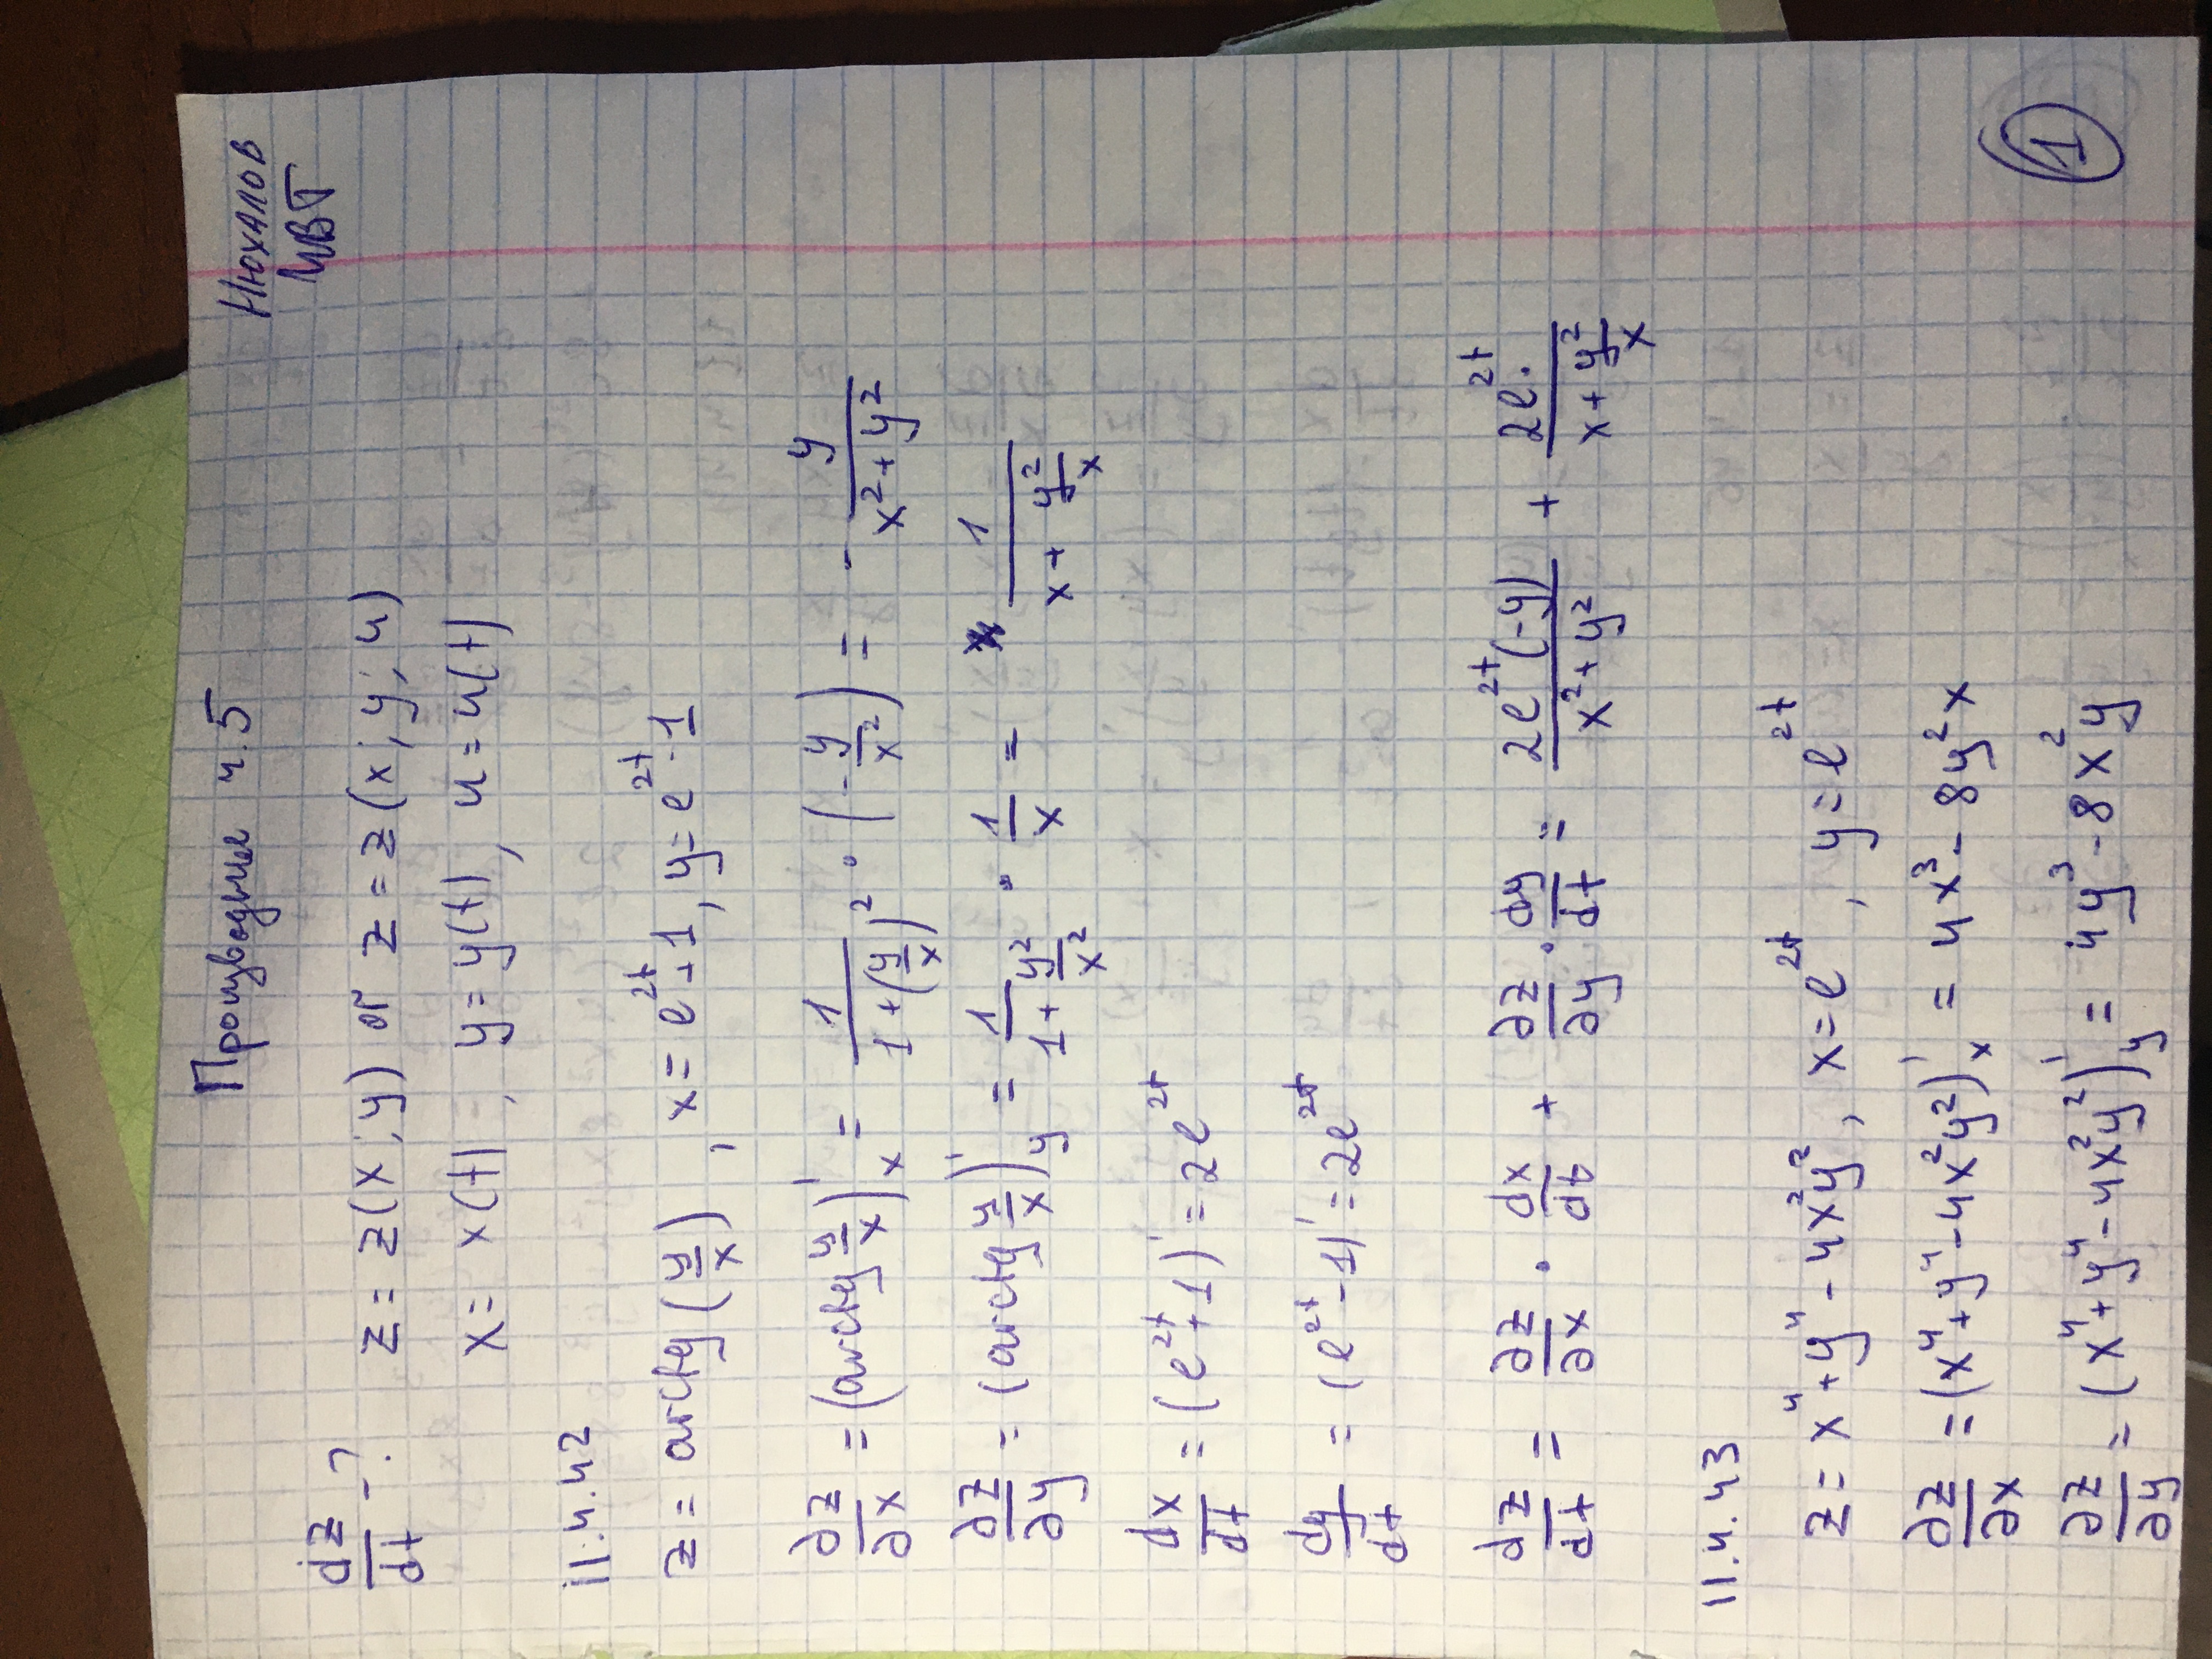 Производные ч.5
Нюхалов
ИВТ
dz/dt - ? z = z(x; y) or z = z(x; y; u)
x = x(t), y = y(t), u = u(t)
11.4.42
z = arctg(y/x), x = e^2t + 1, y = e^2t - 1
∂z/∂x = (arctg y/x)'_x = 1/(1 + (y/x)^2) · (-y/x^2) = - y/(x^2 + y^2)
∂z/∂y = (arctg y/x)'_y = 1/(1 + y^2/x^2) · 1/x = 1/(x + y^2/x)
dx/dt = (e^2t + 1)' = 2e^2t
dy/dt = (e^2t - 1)' = 2e^2t
dz/dt = ∂z/∂x · dx/dt + ∂z/∂y · dy/dt = 2e^2t(-y)/(x^2 + y^2) + 2e^2t/(x + y^2/x)
11.4.43
z = x^4 + y^4 - 4x^2y^2, x = e^2t, y = e^2t
∂z/∂x = (x^4 + y^4 - 4x^2y^2)'_x = 4x^3 - 8y^2x
∂z/∂y = (x^4 + y^4 - 4x^2y^2)'_y = 4y^3 - 8x^2y
1